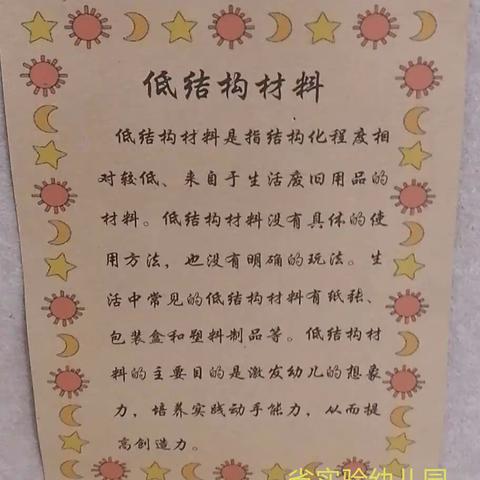 低结构材料
低结构材料是指结构化程度相
对较低、来自于生活废旧用品的
材料。低结构材料没有具体的使
用方法，也没有明确的玩法。生
活中常见的低结构材料有纸张、
包装盒和塑料制品等。低结构材
料的主要目的是激发幼儿的想象
力，培养实践动手能力，从而提
高创造力。
省实验幼儿园